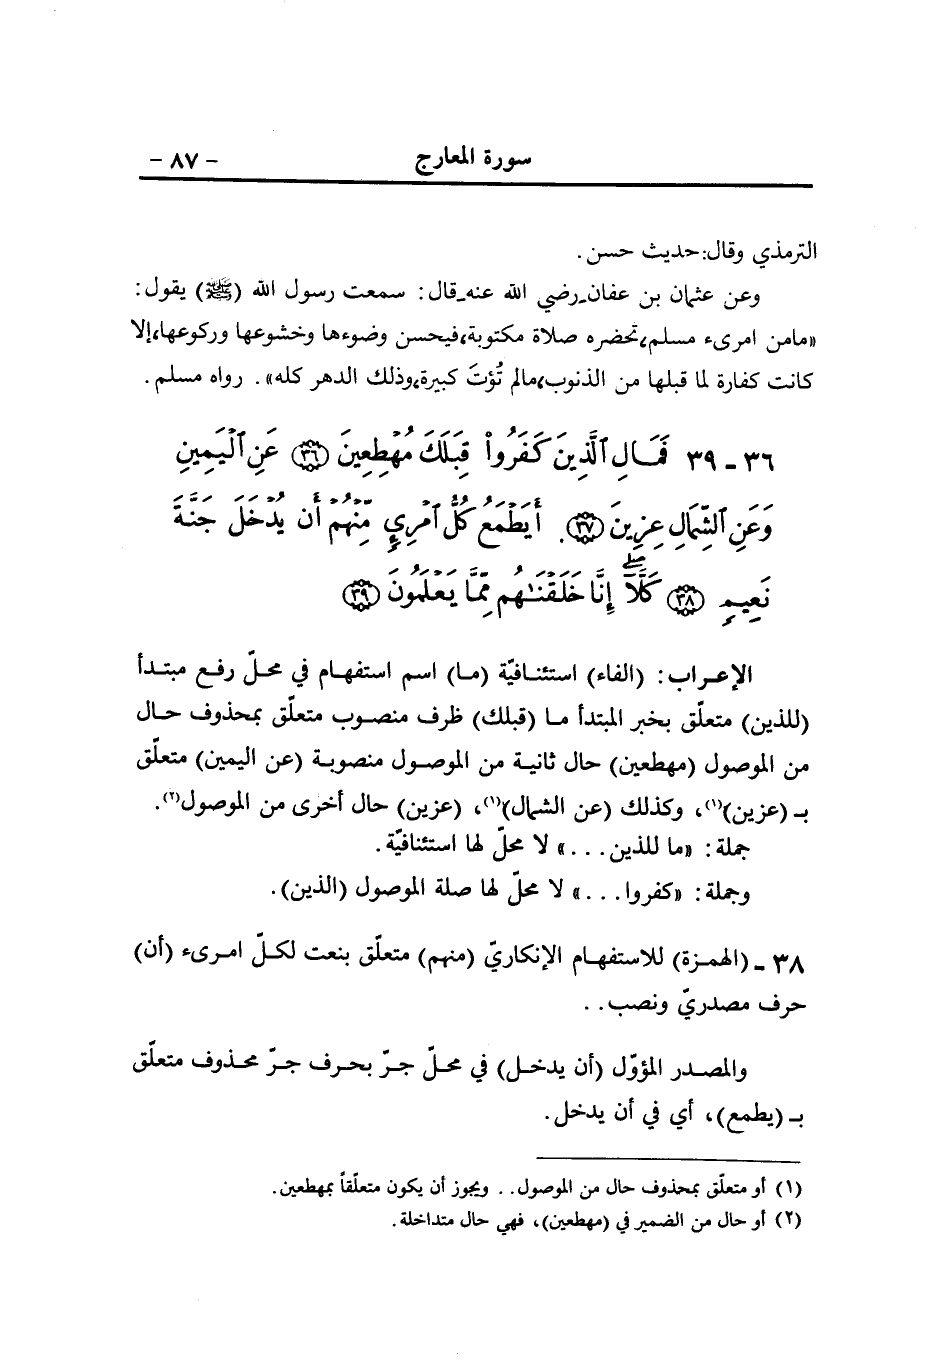 سورة المعارج - ٨٧ -
الترمذي وقال: حديث حسن .
وعن عثمان بن عفان ـ رضي الله عنه ـ قال : سمعت رسول الله (ﷺ) يقول :
«مامن امرىء مسلم، تحضره صلاة مكتوبة، فيحسن وضوءها وخشوعها وركوعها، إلا
كانت كفارة لما قبلها من الذنوب، مالم تُؤتَ كبيرة، وذلك الدهر كله» . رواه مسلم .
٣٦ ـ ٣٩ فَمَالِ ٱلَّذِينَ كَفَرُوا۟ قِبَلَكَ مُهْطِعِينَ ﴿٣٦﴾ عَنِ ٱلْيَمِينِ
وَعَنِ ٱلشِّمَالِ عِزِينَ ﴿٣٧﴾ . أَيَطْمَعُ كُلُّ ٱمْرِئٍ مِّنْهُمْ أَن يُدْخَلَ جَنَّةَ
نَعِيمٍ ﴿٣٨﴾ كَلَّآ ۖ إِنَّا خَلَقْنَـٰهُم مِّمَّا يَعْلَمُونَ ﴿٣٩﴾
الإعراب : (الفاء) استئنافيّة (ما) اسم استفهام في محلّ رفع مبتدأ
(للذين) متعلّق بخبر المبتدأ ما (قبلك) ظرف منصوب متعلّق بمحذوف حال
من الموصول (مهطعين) حال ثانية من الموصول منصوبة (عن اليمين) متعلّق
بـ (عزين)(١)، وكذلك (عن الشمال)(١)، (عزين) حال أخرى من الموصول(٢).
جملة : «ما للذين . . . » لا محلّ لها استئنافيّة .
وجملة : «كفروا . . . » لا محلّ لها صلة الموصول (الذين) .
٣٨ ـ (الهمزة) للاستفهام الإنكاريّ (منهم) متعلّق بنعت لكلّ امرىء (أن)
حرف مصدريّ ونصب . .
والمصدر المؤوّل (أن يدخل) في محلّ جرّ بحرف جرّ محذوف متعلّق
بـ (يطمع)، أي في أن يدخل .
(١) أو متعلّق بمحذوف حال من الموصول . . ويجوز أن يكون متعلّقاً بمهطعين .
(٢) أو حال من الضمير في (مهطعين)، فهي حال متداخلة .